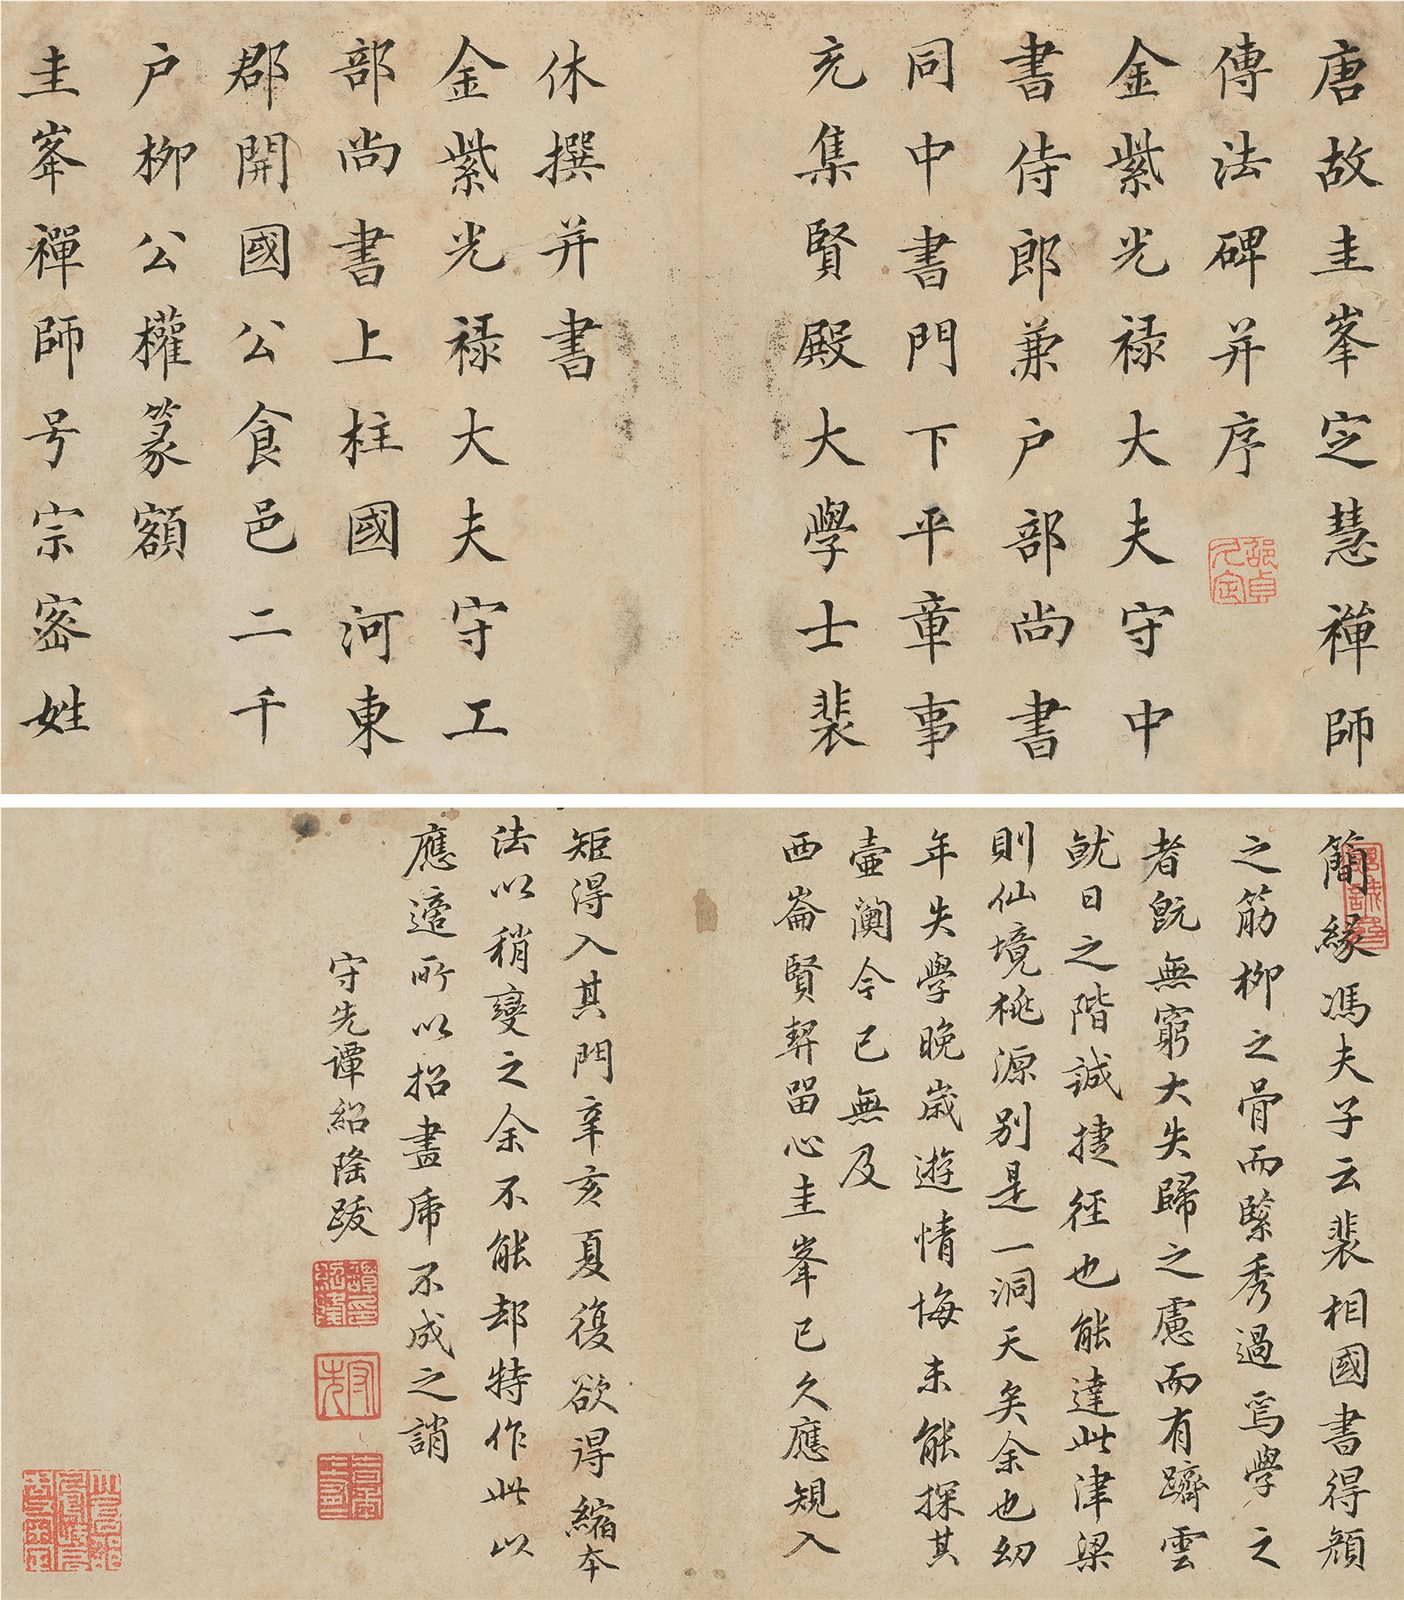 唐故圭峯定慧禪師
傳法碑并序
金紫光禄大夫守中
書侍郎兼户部尚書
同中書門下平章事
充集賢殿大學士裴
休撰并書
金紫光禄大夫守工
部尚書上柱國河東
郡開國公食邑二千
户柳公權篆額
圭峯禪師号宗密姓
簡緣馮夫子云裴相國書得顔
之筋柳之骨而緊秀過焉學之
者既無窮大失歸之慮而有躋雲
就日之階誠捷徑也能達此津梁
則仙境桃源别是一洞天矣余也幼
年失學晚歲遊情悔未能探其
壷闌今已無及
西崙賢契留心圭峯已久應規入
矩得入其門辛亥夏復欲得縮本
法以稍變之余不能却特作此以
應適所以招畫乕不成之誚
守先譚紹隆跋